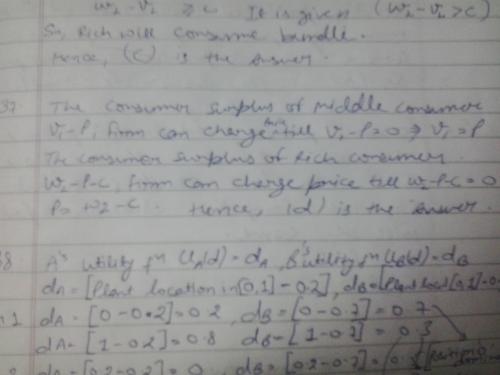 W2 - V2 ≥ C It is given (W2 - V2 > C)
So, Rich will consume bundle.
Hence, (C) is the answer.
37. The consumer surplus of middle consumer
V1-P, firm can charge price till V1-P=0 ⇒ V1=P
The consumer surplus of Rich consumer
W2-P-C, firm can charge price till W2-P-C=0
P= W2-C. Hence, (d) is the answer.
38 A's utility fn UA(d) = dA, B's utility fn UB(d) = dB
dA = [Plant location in [0,1] - 0.2], dB = [Plant loca [0,1] -
dA = [0-0.2] = 0.2, dB = [0-0.7] = 0.7
dA = [1-0.2] = 0.8 dB = [1-0.7] = 0.3
dA = [0.2-0.2] = 0 dB = [0.2-0.7] =